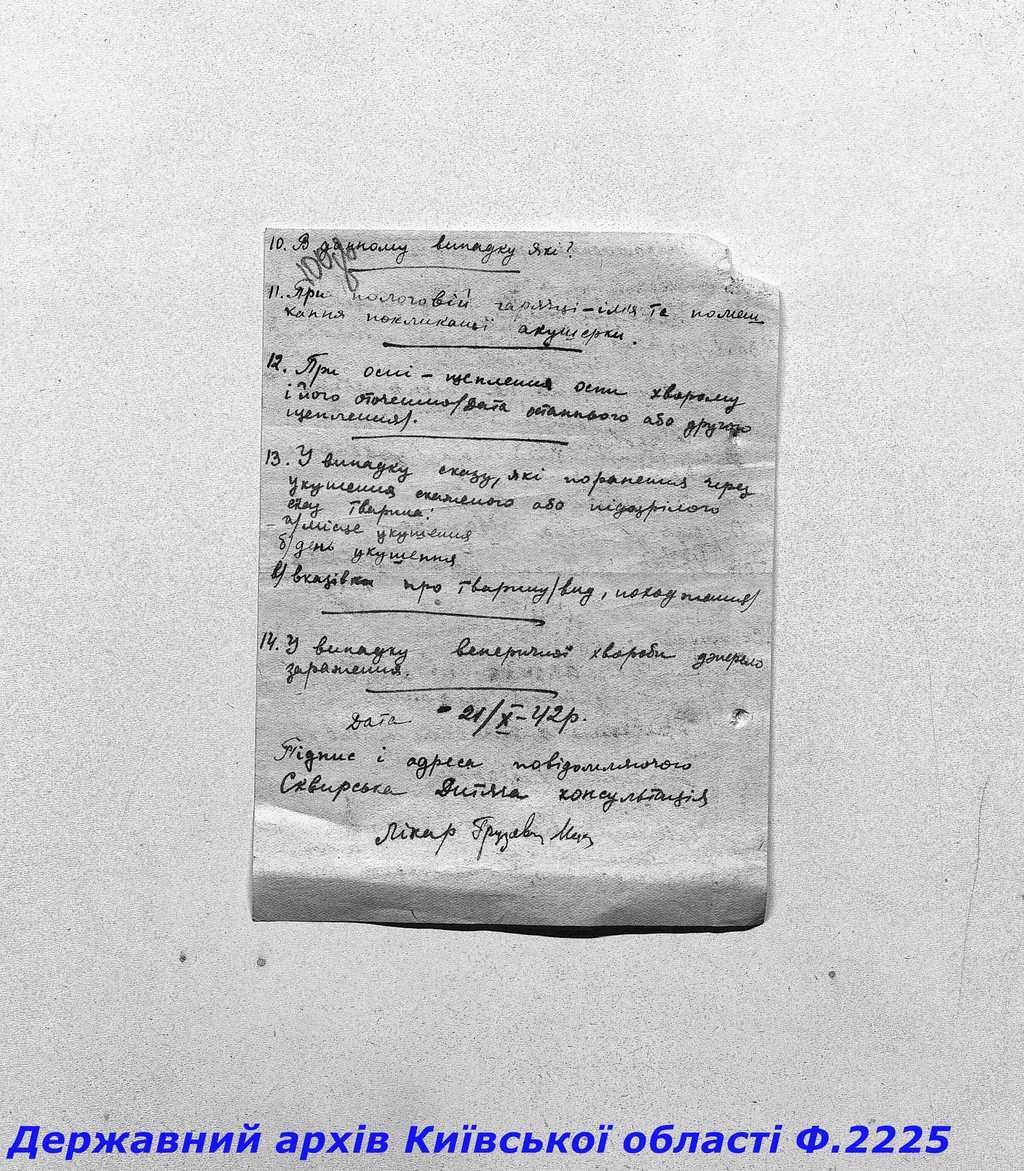 10. В данному випадку які?
11. При пологовій гарячці – імя та помеш
кання покликаної акушерки.
12. При оспі – щеплення оспи хворому
і його оточення/Дата останнього або другого
щеплення/.
13. У випадку сказу, які поранення через
укушення скаженого або підозрілого
тварина:
а/ місце укушення
б/ день укушення
в/ вказівки про тварину/вид, походження/
14. У випадку венеричної хвороби джерело
зараження.
Дата - 21/X-42р.
Підпис і адреса повідомляючого
Сквирська Дитяча консультація
Лікар
Державний архів Київської області Ф.2225